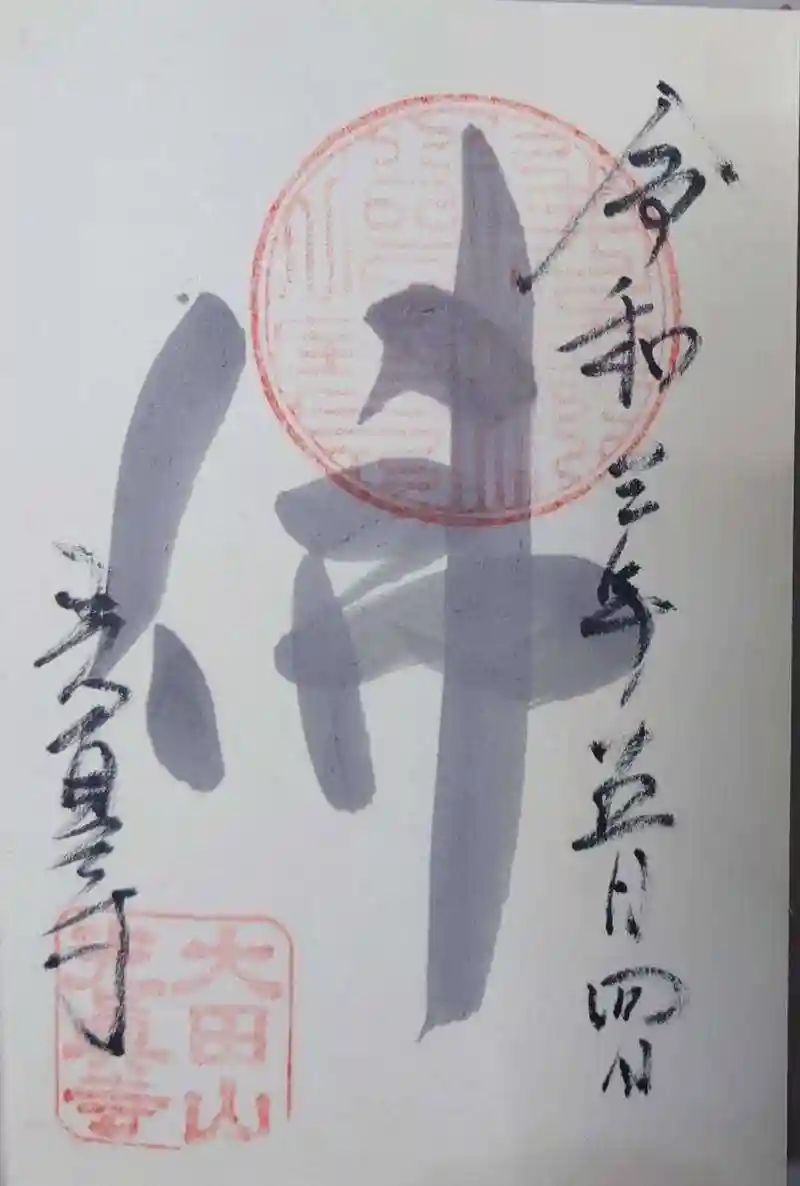 令和三年五月四日
佛
光真寺
大田山
光真寺